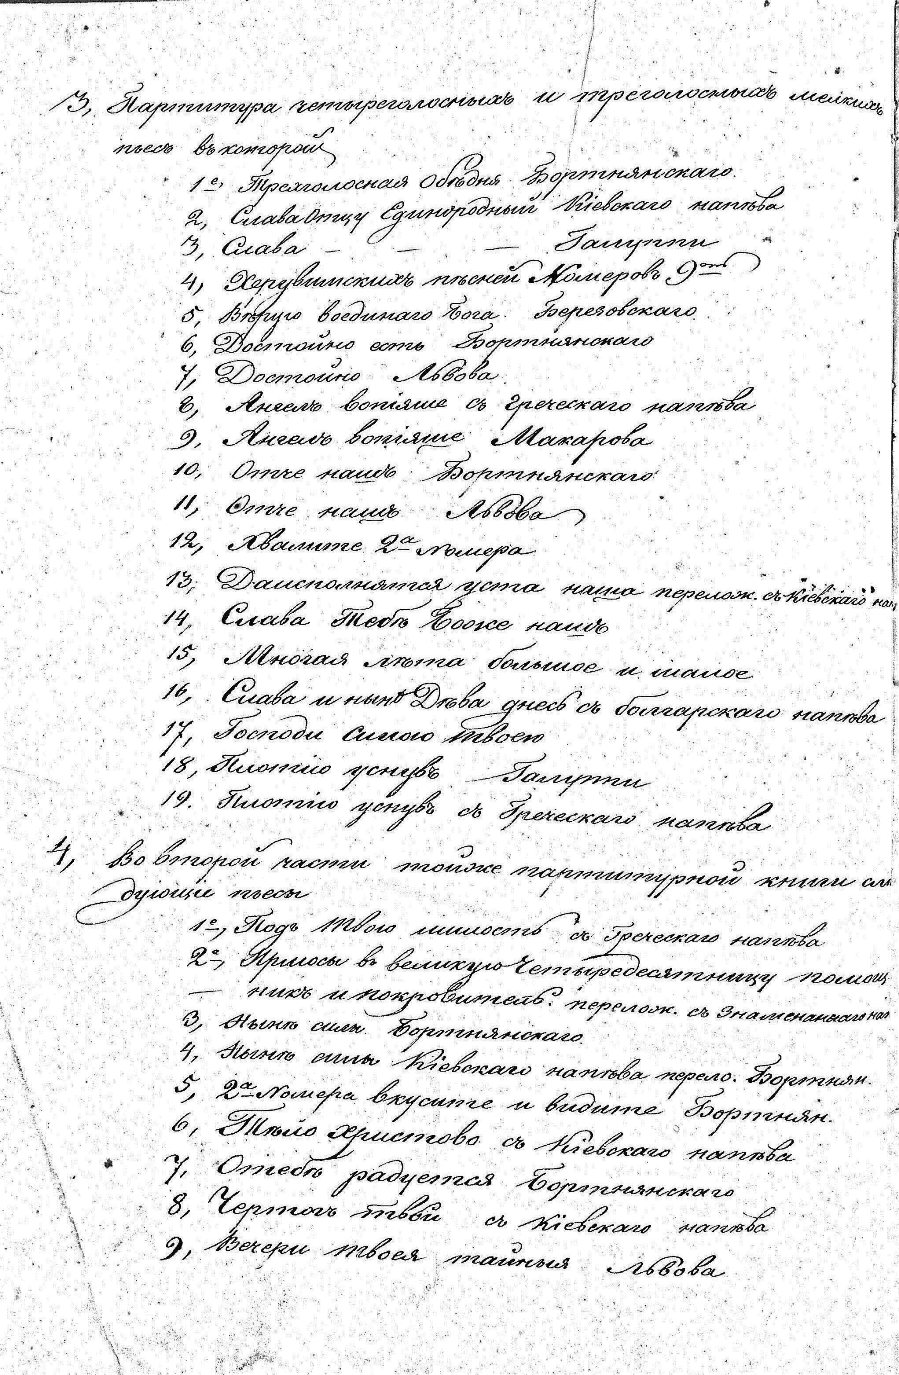 3, Партитура четыреголосныхъ и треголосныхъ мелкихъ
пьесъ въ которой
1е, Трехголосная Обѣдня Бортнянскаго.
2, Слава Отцу Единородный Кіевскаго напѣва
3, Слава — — — Галуппи
4, Херувимскихъ пѣсней Номеровъ 9ть
5, Вѣрую воединаго Бога. Березовскаго
6, Достойно есть Бортнянскаго
7, Достойно Львова
8, Ангелъ вопіяше съ греческаго напѣва
9, Ангелъ вопіяше Макарова
10, Отче нашъ Бортнянскаго
11, Отче нашъ Львова
12, Хвалите 2а номера
13, Даисполнятся уста наша перелож. съ Кіевскаго нап
14, Слава Тебѣ Боже нашъ
15, Многая лѣта большое и малое
16, Слава и нынѣ Дѣва днесь съ болгарскаго напѣва
17, Господи силою твоею
18, Плотію уснувъ Галуппи
19. Плотію уснувъ съ Греческаго напѣва
4, Во второй части тойже партитурной книги слѣ
дующіе пьесы
1е, Подъ твою милость съ Греческаго напѣва
2е, Ирмосы въ великую Четыредесятницу помощ
— никъ и покровитель. перелож. съ Знаменнаго нап
3, Нынѣ силы Бортнянскаго
4, Нынѣ силы Кіевскаго напѣва перело. Бортнян.
5, 2а Номера вкусите и видите Бортнян.
6, Тѣло Христово съ Кіевскаго напѣва
7, Отебѣ радуется Бортнянскаго
8, Чертогъ твой съ Кіевскаго напѣва
9, Вечери твоея тайныя Львова